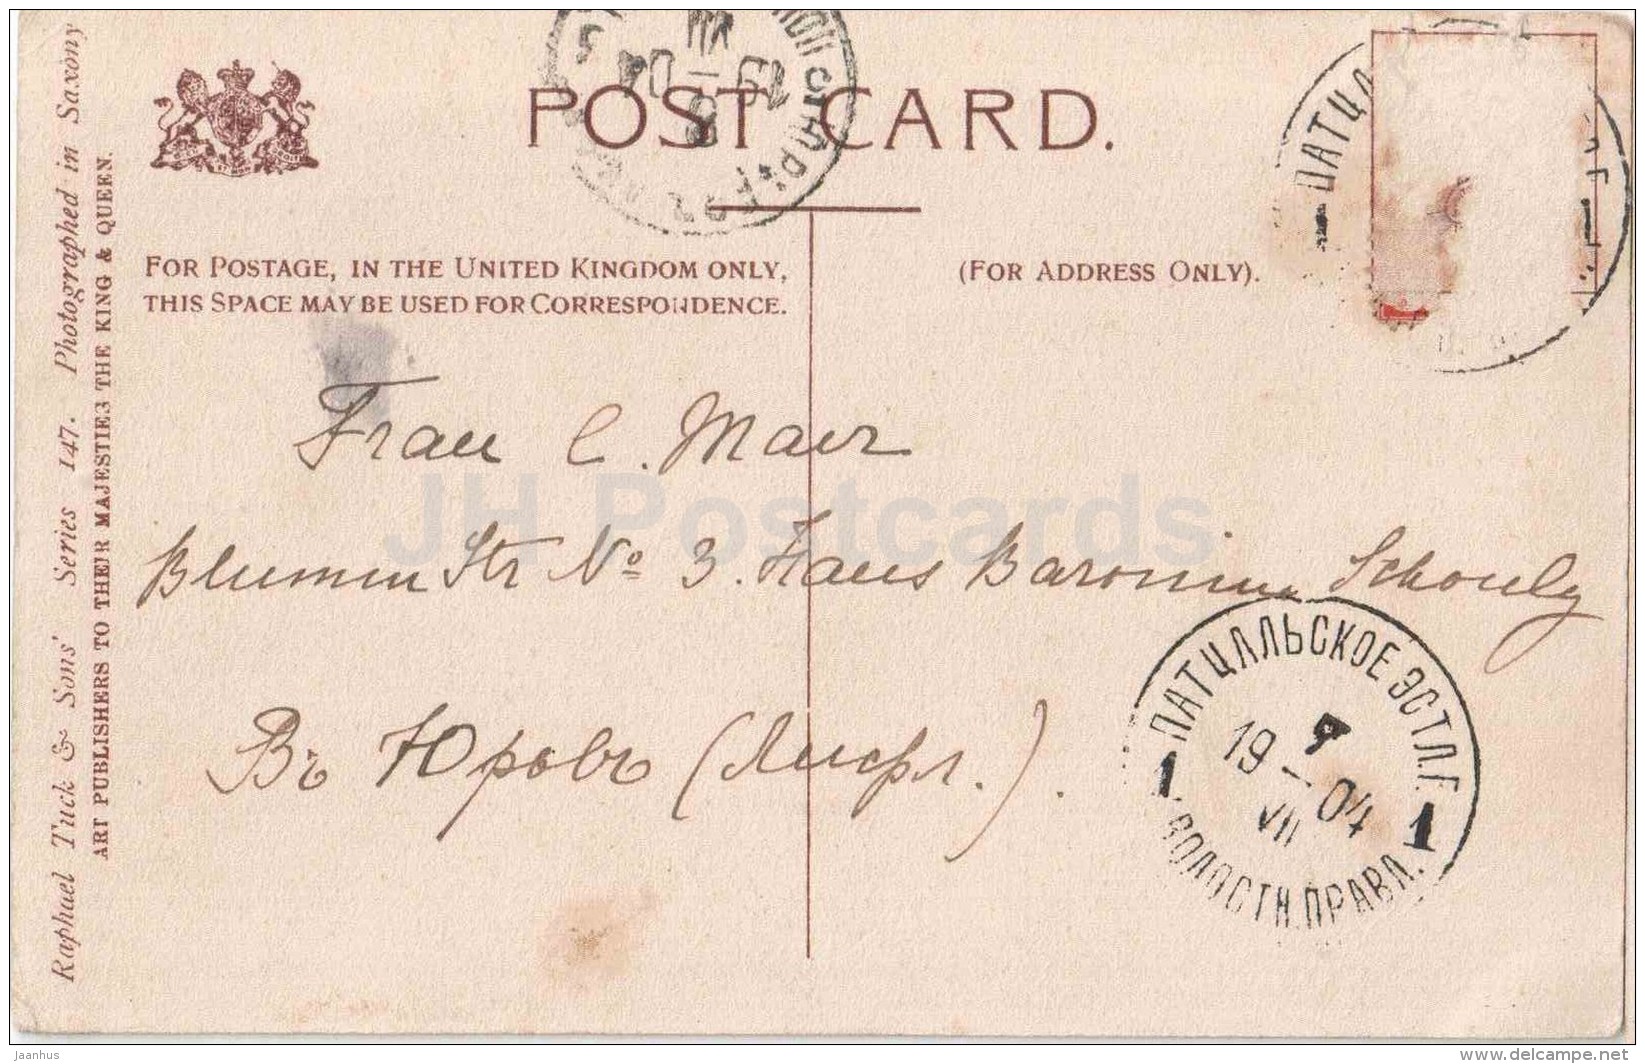 POST CARD.
FOR POSTAGE, IN THE UNITED KINGDOM ONLY,
THIS SPACE MAY BE USED FOR CORRESPONDENCE.
(FOR ADDRESS ONLY).
Raphael Tuck & Sons' Series 147. Photographed in Saxony
ART PUBLISHERS TO THEIR MAJESTIES THE KING & QUEEN.
Frau C. Maur
Blumen Str No 3. Haus Baronin
Въ Юрьевъ (Лифл.).
ПАТЦАЛЬСКОЕ ЭСТЛ.Г.
7
19 – 04
VII
1 1
ВОЛОСТН. ПРАВЛ.
ПАТЦАЛ
JH Postcards
jaanhus
www.delcampe.net